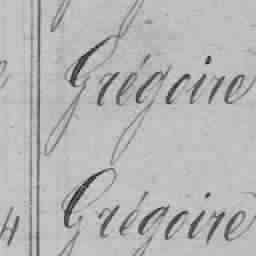 Grégoire
4 Grégoire